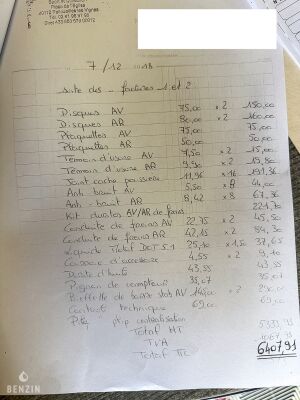 Place de l'Église
7/12 2018
suite des factures 1 et 2
Disques AV 75,00 x 2 150,00
Disques AR 80,00 x 2 160,00
Plaquettes AV 75,00 75,00
Plaquettes AR 50,00 50,00
Temoin d'usure AV 7,50 x 2 15,00
Temoin d'usure AR 9,90 x 2 19,80
Joint cache poussière 11,96 x 16 191,36
Anti bruit AV 5,50 x 8 44,00
Anti-bruit AR 8,42 x 8 67,36
Kit durites AV/AR de freins
Conduite de freins AV 22,75 x 2 45,50
Conduite de freins AR 42,15 x 2 84,30
Liquide DOT 5.1 25,10 x 1,50 37,65
4,55 x 2 9,10
43,55 43,55
Pignon de compteur 35,07 35,07
Biellette de barre stab AV x 2
Contrôle technique 69,00 69,00
Total HT 5339,93
TVA
Total TTC 6407,91
BENZIN